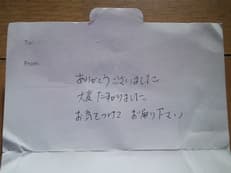 To:
From:
ありがとうございました。
大変たすかりました。
お気をつけて お帰り下さい♪